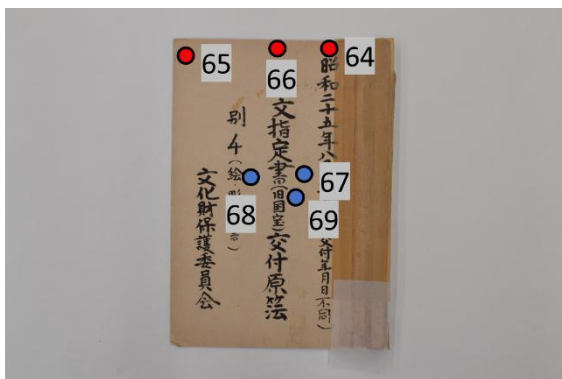 65
66
64
67
68
69
昭和二十五年八 交付年月日不同)
文指定書(旧国宝)交付原簿
別 4(絵・
文化財保護委員会